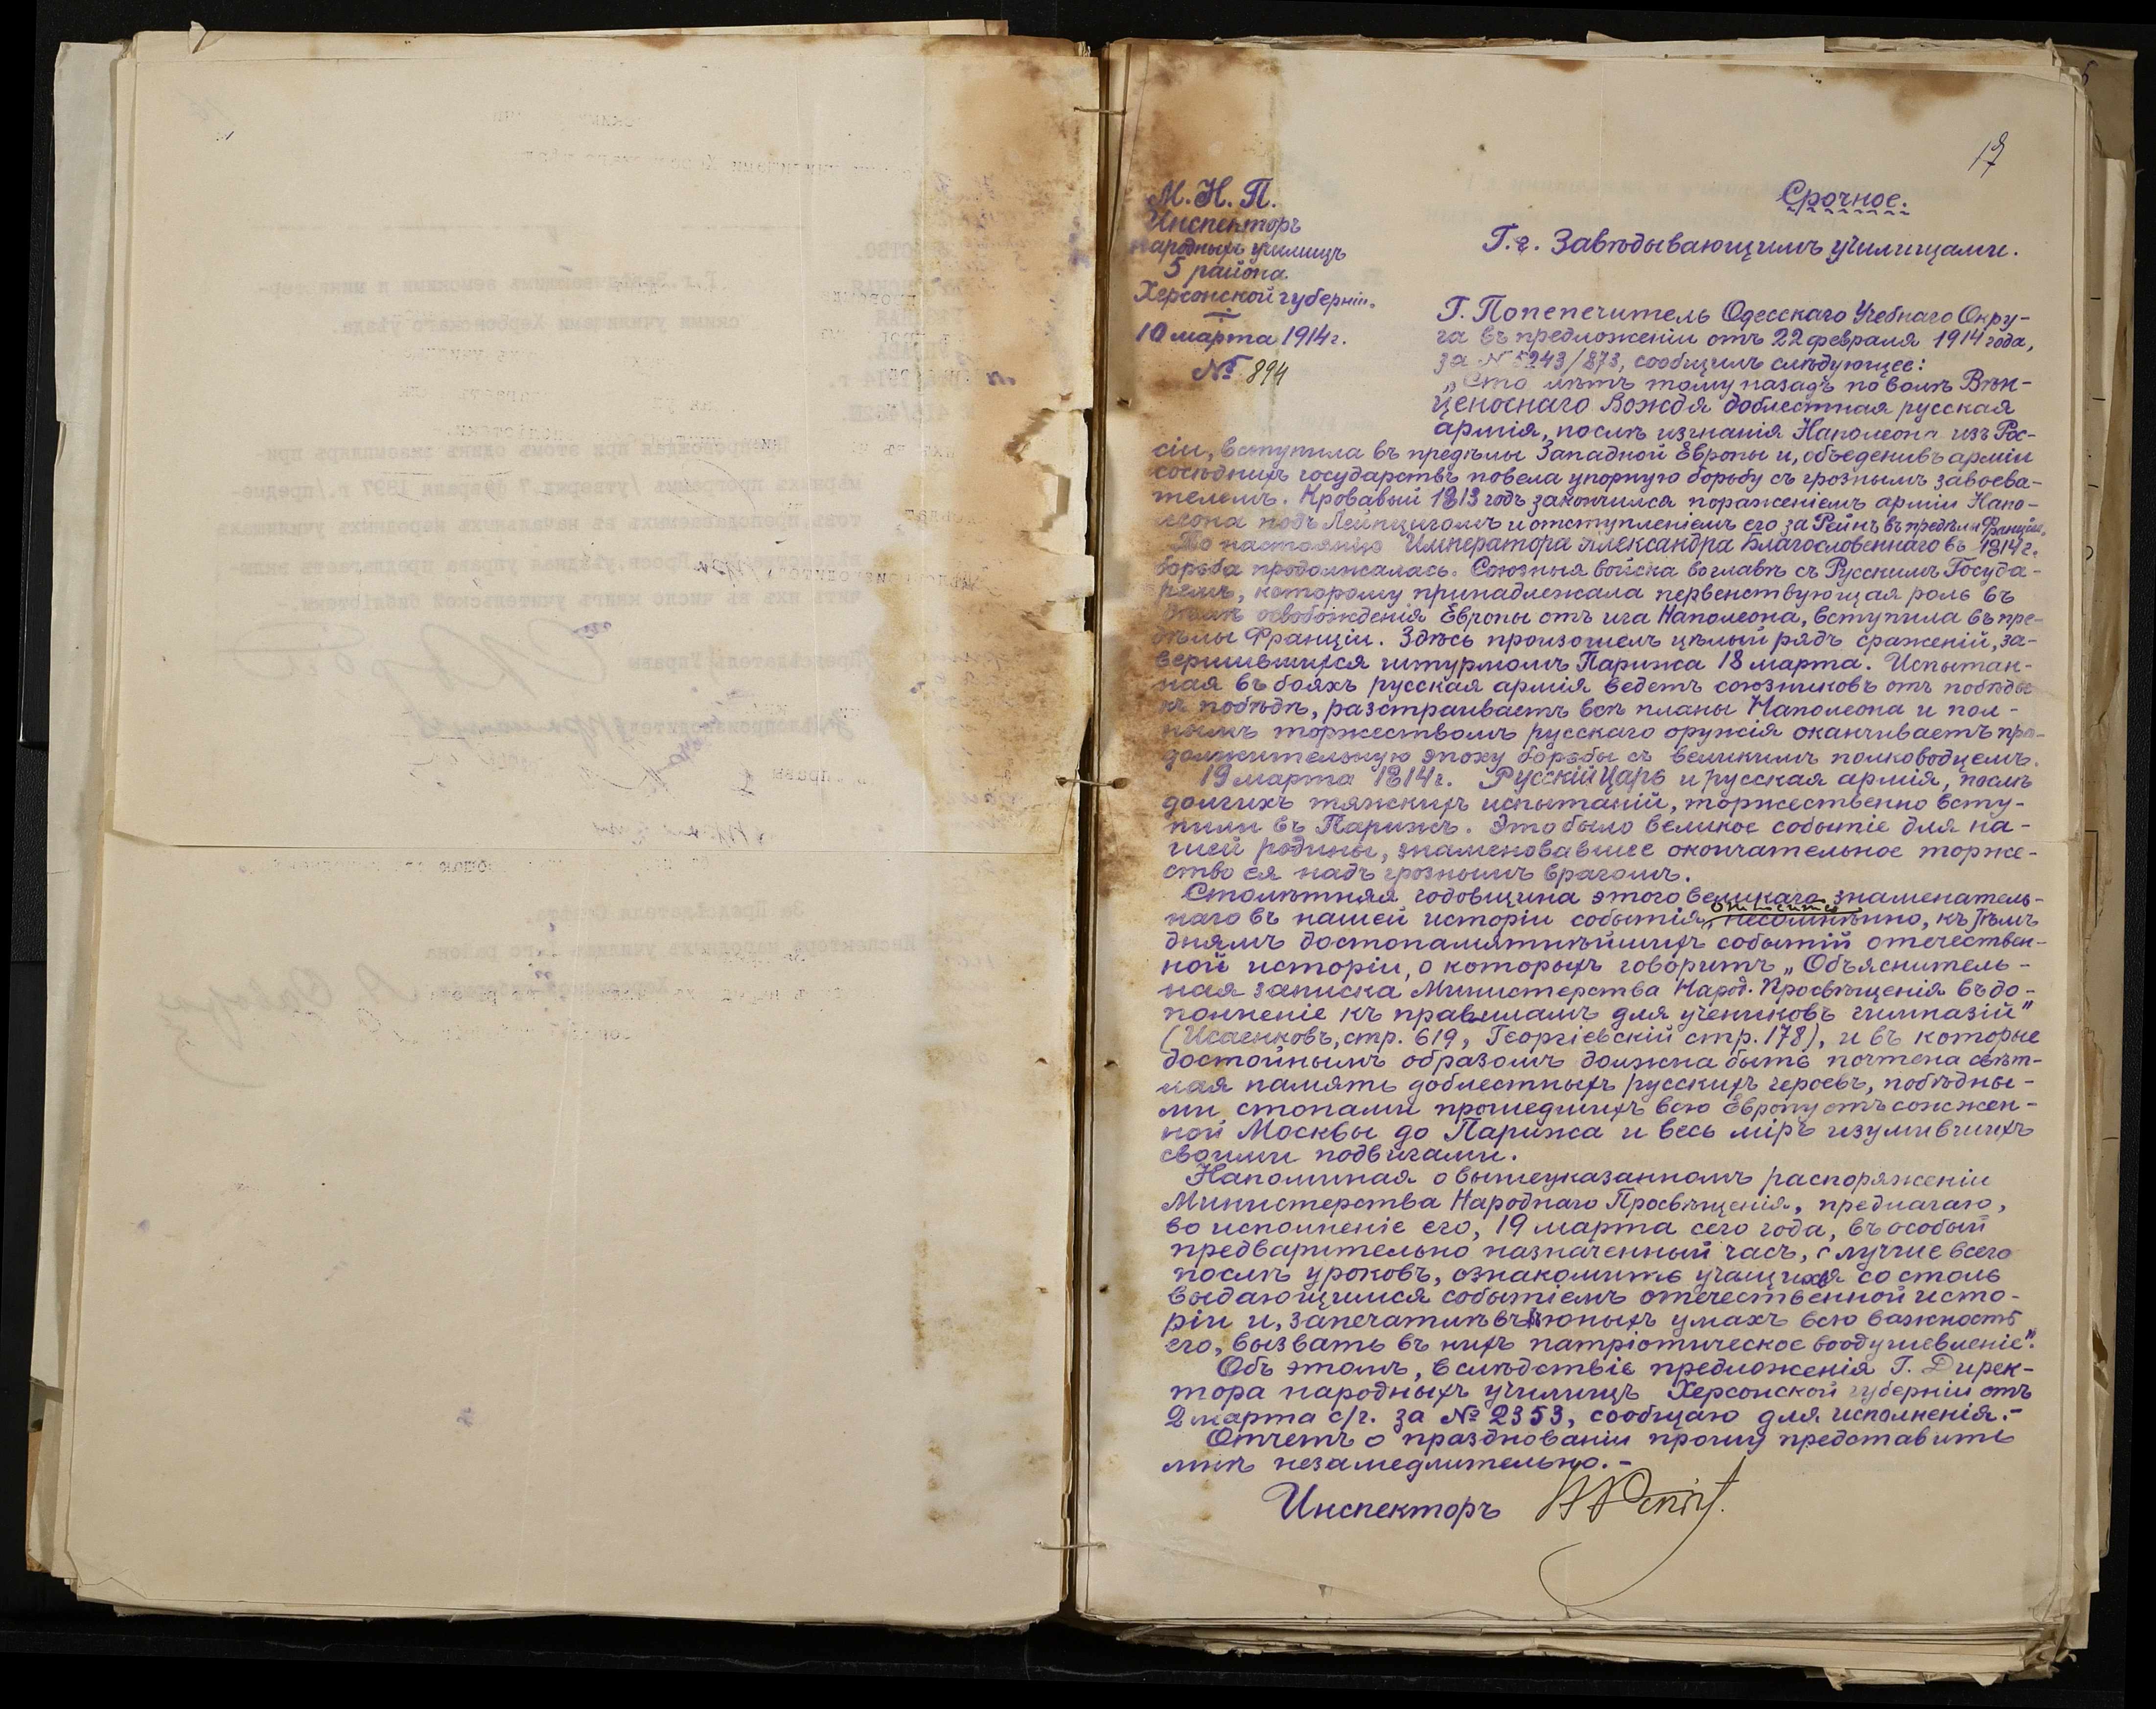 17
Срочное.
М. Н. П.
Инспекторъ
народныхъ училищъ
5 района
Херсонской губерніи.
10 марта 1914 г.
№ 894
Г.г. Завѣдывающимъ училищами.
Г. Попепечитель Одесскаго Учебнаго Окру-
га въ предложеніи отъ 22 февраля 1914 года,
за № 5243/873, сообщилъ слѣдующее:
„Сто лѣтъ тому назадъ по волѣ Вѣн-
ценоснаго Вождя доблестная русская
армія, послѣ изгнанія Наполеона изъ Рос-
сіи, вступила въ предѣлы Западной Европы и, объеденивъ арміи
сосѣднихъ государствъ повела упорную борьбу съ грознымъ завоева-
телемъ. Кровавый 1813 годъ закончился пораженіемъ арміи Напо-
леона подъ Лейпцигомъ и отступленіемъ его за Рейнъ въ предѣлы Франціи.
По настоянію Императора Александра Благословеннаго въ 1814 г.
борьба продолжалась. Союзныя войска во главѣ съ Русскимъ Госуда-
ремъ, которому принадлежала первенствующая роль въ
дѣлѣ освобожденія Европы отъ ига Наполеона, вступила въ пре-
дѣлы Франціи. Здѣсь произошелъ цѣлый рядъ сраженій, за-
вершившихся штурмомъ Парижа 18 марта. Испытан-
ная въ бояхъ русская армія ведетъ союзниковъ отъ побѣды
къ побѣдѣ, разстраиваетъ всѣ планы Наполеона и пол-
нымъ торжествомъ русскаго оружія оканчиваетъ про-
должительную эпоху борьбы съ великимъ полководцемъ.
19 марта 1814 г. Русскій Царь и русская армія, послѣ
долгихъ тяжкихъ испытаній, торжественно всту-
пили въ Парижъ. Это было великое событіе для на-
шей родины, знаменовавшее окончательное торже-
ство ея надъ грознымъ врагомъ.
Столѣтняя годовщина этого великаго знаменатель-
наго въ нашей исторіи событія относится несомнѣнно, къ тѣмъ
днямъ достопамятнѣйшихъ событій отечествен-
ной исторіи, о которыхъ говоритъ „Объяснитель-
ная записка Министерства Народ. Просвѣщенія въ до-
полненіе къ правиламъ для учениковъ гимназій"
(Исаенковъ, стр. 619, Георгіевскій стр. 178), и въ которые
достойнымъ образомъ должна быть почтена свѣт-
лая память доблестныхъ русскихъ героевъ, побѣдны-
ми стопами прошедшихъ всю Европу отъ сожжен-
ной Москвы до Парижа и весь міръ изумившихъ
своими подвигами.
Напоминая о вышеуказанномъ распоряженіи
Министерства Народнаго Просвѣщенія, предлагаю,
во исполненіе его, 19 марта сего года, въ особый
предварительно назначенный часъ, лучше всего
послѣ уроковъ, ознакомить учащихся со столь
выдающимся событіемъ отечественной исто-
ріи и, запечатлѣвъ въ юныхъ умахъ всю важность
его, вызвать въ нихъ патріотическое воодушевленіе".
Объ этомъ, вслѣдствіе предложенія Г. Дирек-
тора народныхъ училищъ Херсонской губерніи отъ
2 марта с/г. за № 2353, сообщаю для исполненія.-
Отчетъ о празднованіи прошу представить
мнѣ незамедлительно.-
Инспекторъ